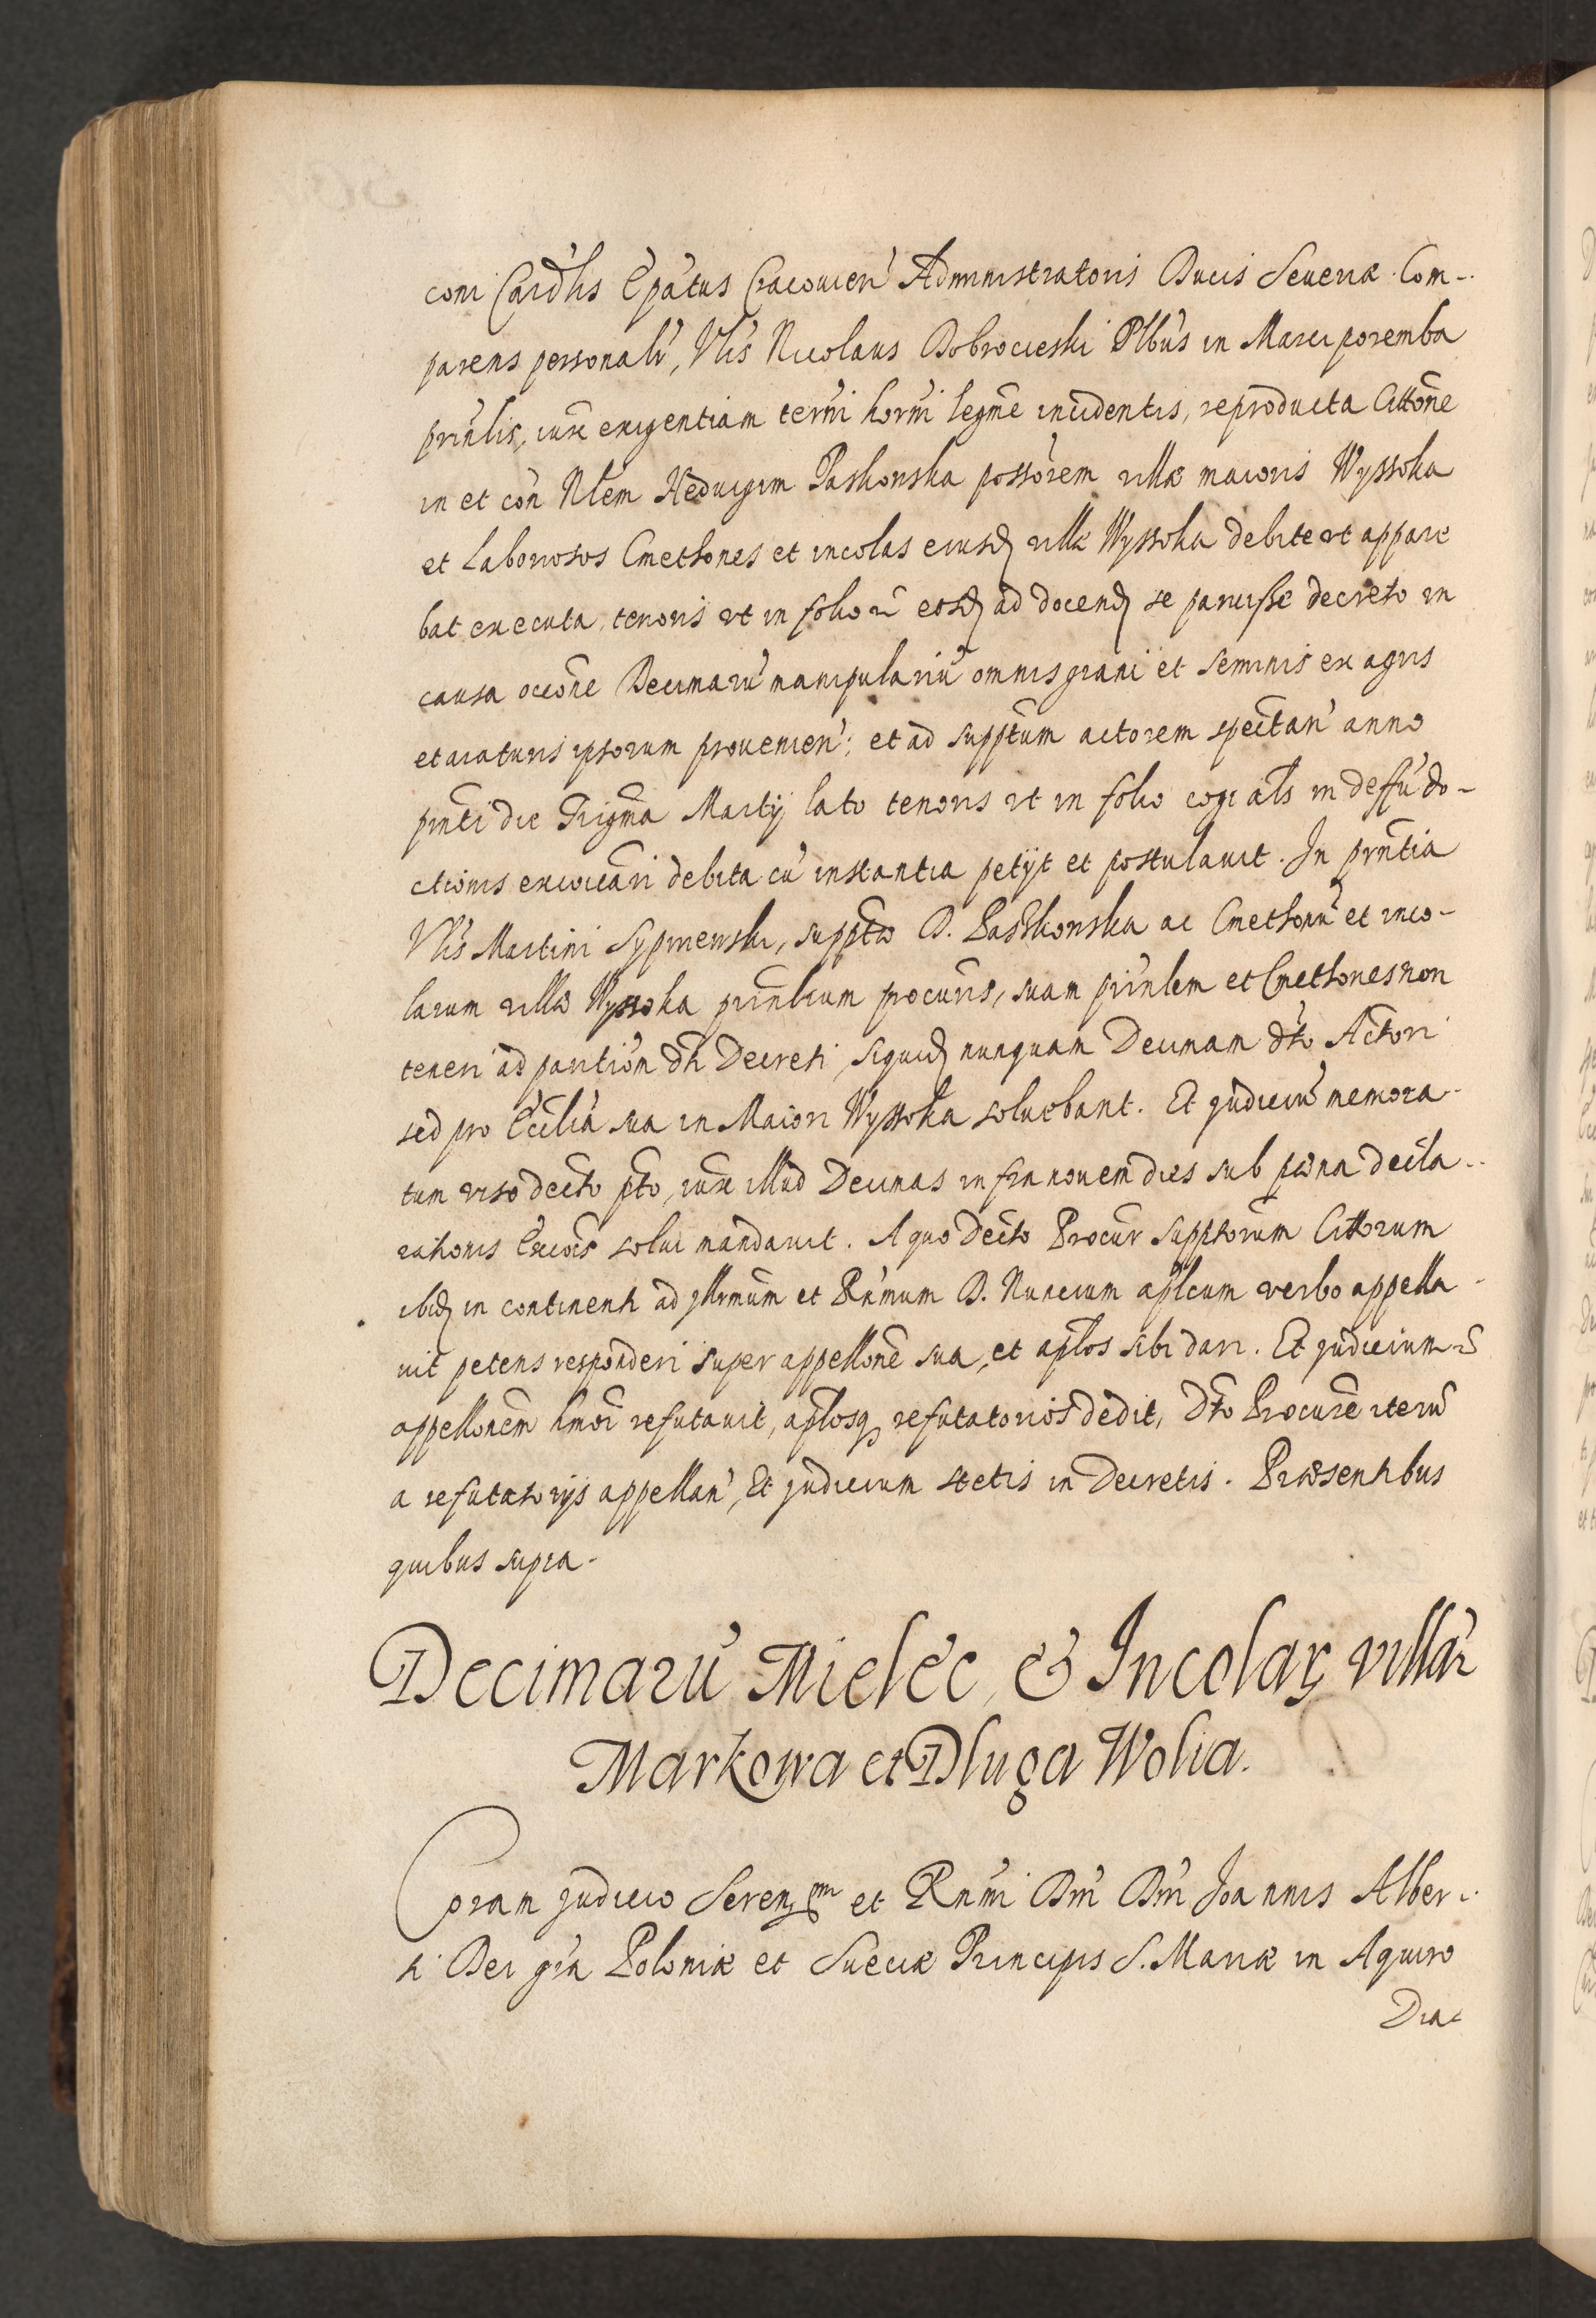 coni Cardlis Epatus Cracouien Administratoris Ducis Seueriæ. Com-
parens personalr, Vlis Nicolaus Dobrocieski Plbus in Marciporemba
prinlis, iuxe exigentiam termi horni legme incidentis, reproducta Cittone
in et con Nlem Heduigim Paskonska possorem villæ maioris Wyssoka
et Laboriosos Cmethones et incolas eiusd villæ Wyssoka debite vt appare
bat executa, tenoris vt in folio r eosd ad docend se paruisse decreto in
causa occone Decimaru manipulariu omnis grani et seminis ex agris
et araturis ipsorum prouenien; et ad supptum actorem spectan anno
pnti die Trigma Martij lato tenoris vt in folio cogi als in deffu do-
ctionis exccicari debita cu instantia petijt et postulauit. In prntia
Vlis Martini Sypniewski, suppto D. Paskonska ac Cmethonu et inco-
larum villæ Wyssoka prinlium procuris, suam prinlem et Cmethones non
teneri ad parition dti Decreti, siquid nunquam Decimam dto Actori
sed pro Ecclia sua in Maiori Wyssoka soluebant. Et Judiciu memora-
tum viso decto pto, iuxe illud Decimas infra nouem dies sub pæna decla-
rationis Excois solui mandauit. A quo Decto Procur supptorum Cittorum
ibid in continenti ad Illrmum et Rnmum D. Nuncium aplcum verbo appella-
uit petens responderi super appellone sua, et aplos sibi dari. Et Judicium r
appellonem hmoi refutauit, aplosq refutatorios dedit, Dto Procure iteru
a refutatorijs appellan, Et Judicium stetis in Decretis. Præsentibus
quibus supra.
Decimaru Mielec, & Incolar villar
Markowa et Dluga Wolia.
Coram Judicio Serenssmi et Rnmi Dni Dni Joannis Alber-
ti Dei gra Poloniæ et Sueciæ Principis S. Mariæ in Aquiro
Dia-